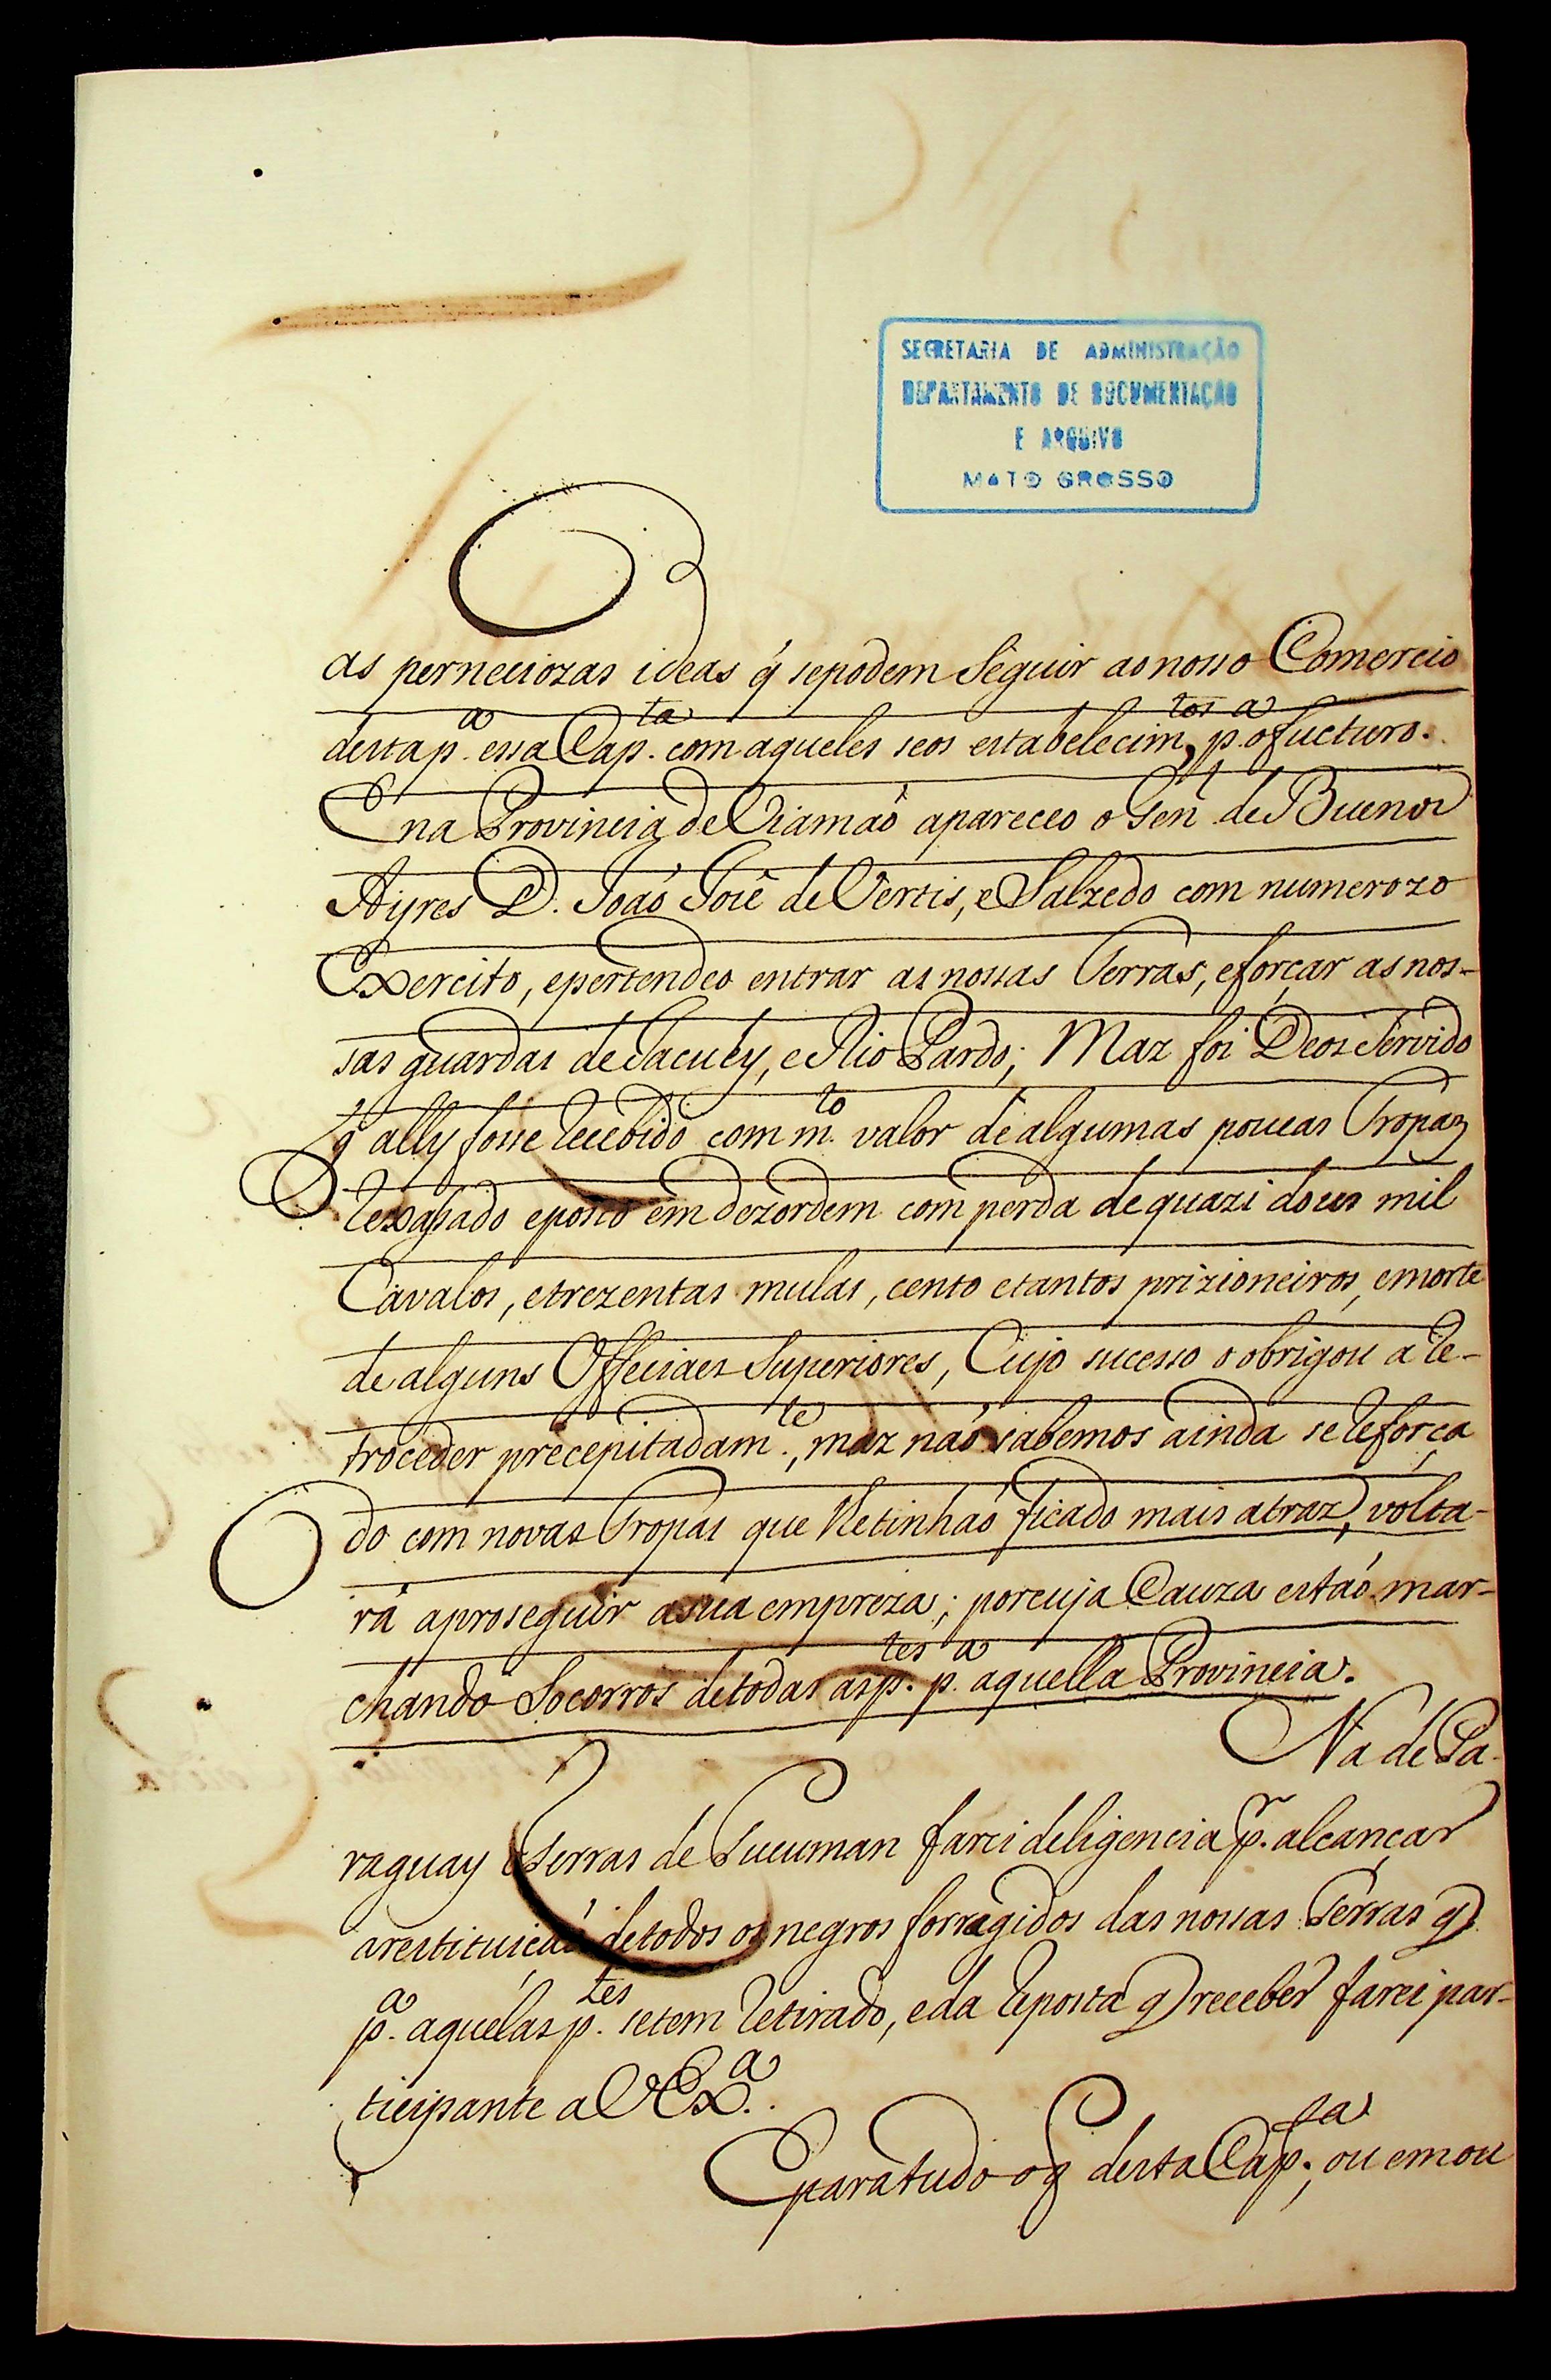 SECRETARIA DE ADMINISTRAÇÃO
DEPARTAMENTO DE DOCUMENTAÇÃO
E ARQUIVO
MATO GROSSO
as perneciozas ideas q̃ sepodem Seguir aonosso Comercio
desta p.ª essa Cap.ta com aqueles seos estabelecim.tos p.ª o fucturo.
E na Provincia de Viamaó apareceo o Gen.l de Buenos
Ayres D. Joaó José de Vertis, e Salzedo com numerozo
Exercito, epertendeo entrar as nossas Terras, eforçar as nos-
sas guardas de Jacuhy, e Rio Pardo; Maz foi Deos Servido
q̃ ally fosse recebido com m.to valor de algumas poucas Tropaz
rexaçado eposto em dezordem com perda de quazi dous mil
Cavalos, etrezentas mulas, cento etantos prizioneiros, emorte
de alguns Officiaes Superiores, Cujo sucesso o obrigou a re-
troceder precepitadam.te, maz naó sabemos ainda se reforça
do com novas Tropas que lhe tinhaó ficado mais atraz, volta-
rá aproseguir asua empreza; porcuja Cauza estaó mar-
chando Socorros detodas as p.tes p.ª aquella Provincia.
Na de Pa-
raguay e Serras de Tucuman farei deligencia p.r alcançar
arestituiçaó detodos os negros forragidos das nossas Terras q̃
p.ª aquelas p.tes setem retirado, eda reposta q̃ receber farei par-
ticipante a V Ex.ª.
E paratudo o q̃ desta Cap.ta, ou emou